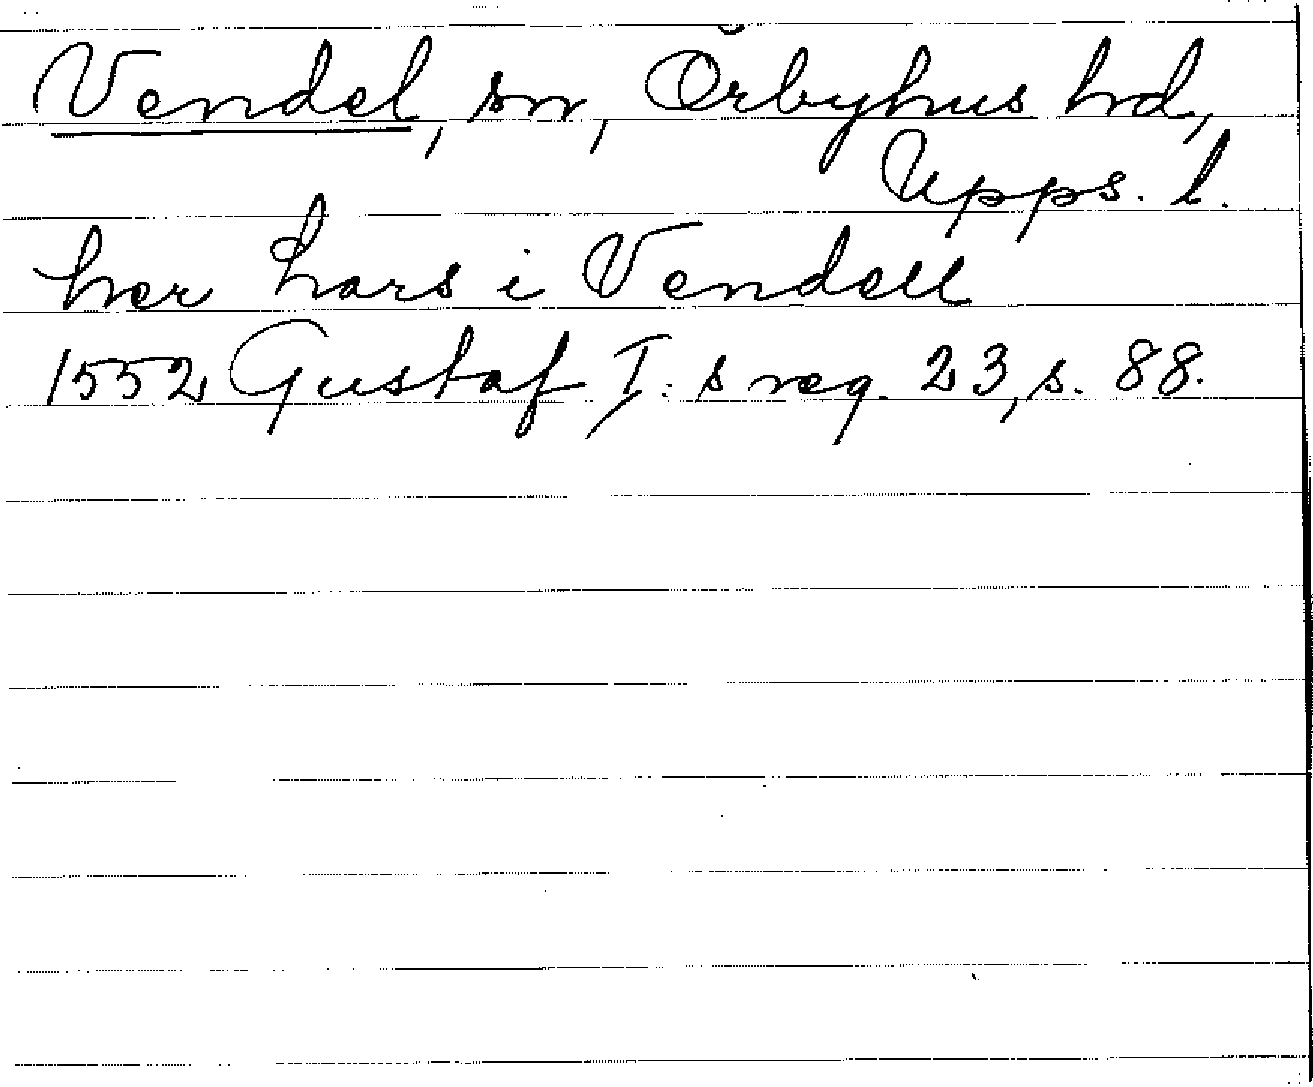 Vendel, sn, Örbyhus hd,
Upps. l.
her Lars i Vendell
1552 Gustaf I:s reg. 23, s. 88.